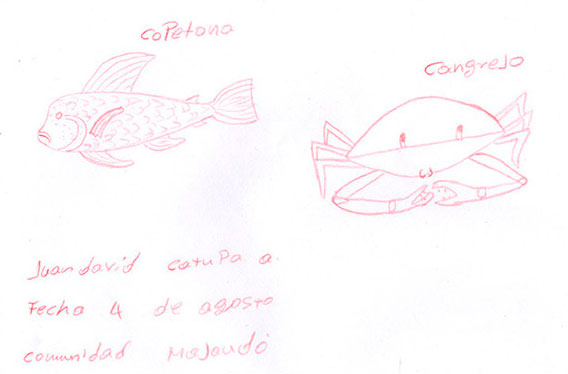 coPetona
cangrejo
Juan david catuPa a.
Fecha 4 de agosto
comunidad Majaudó